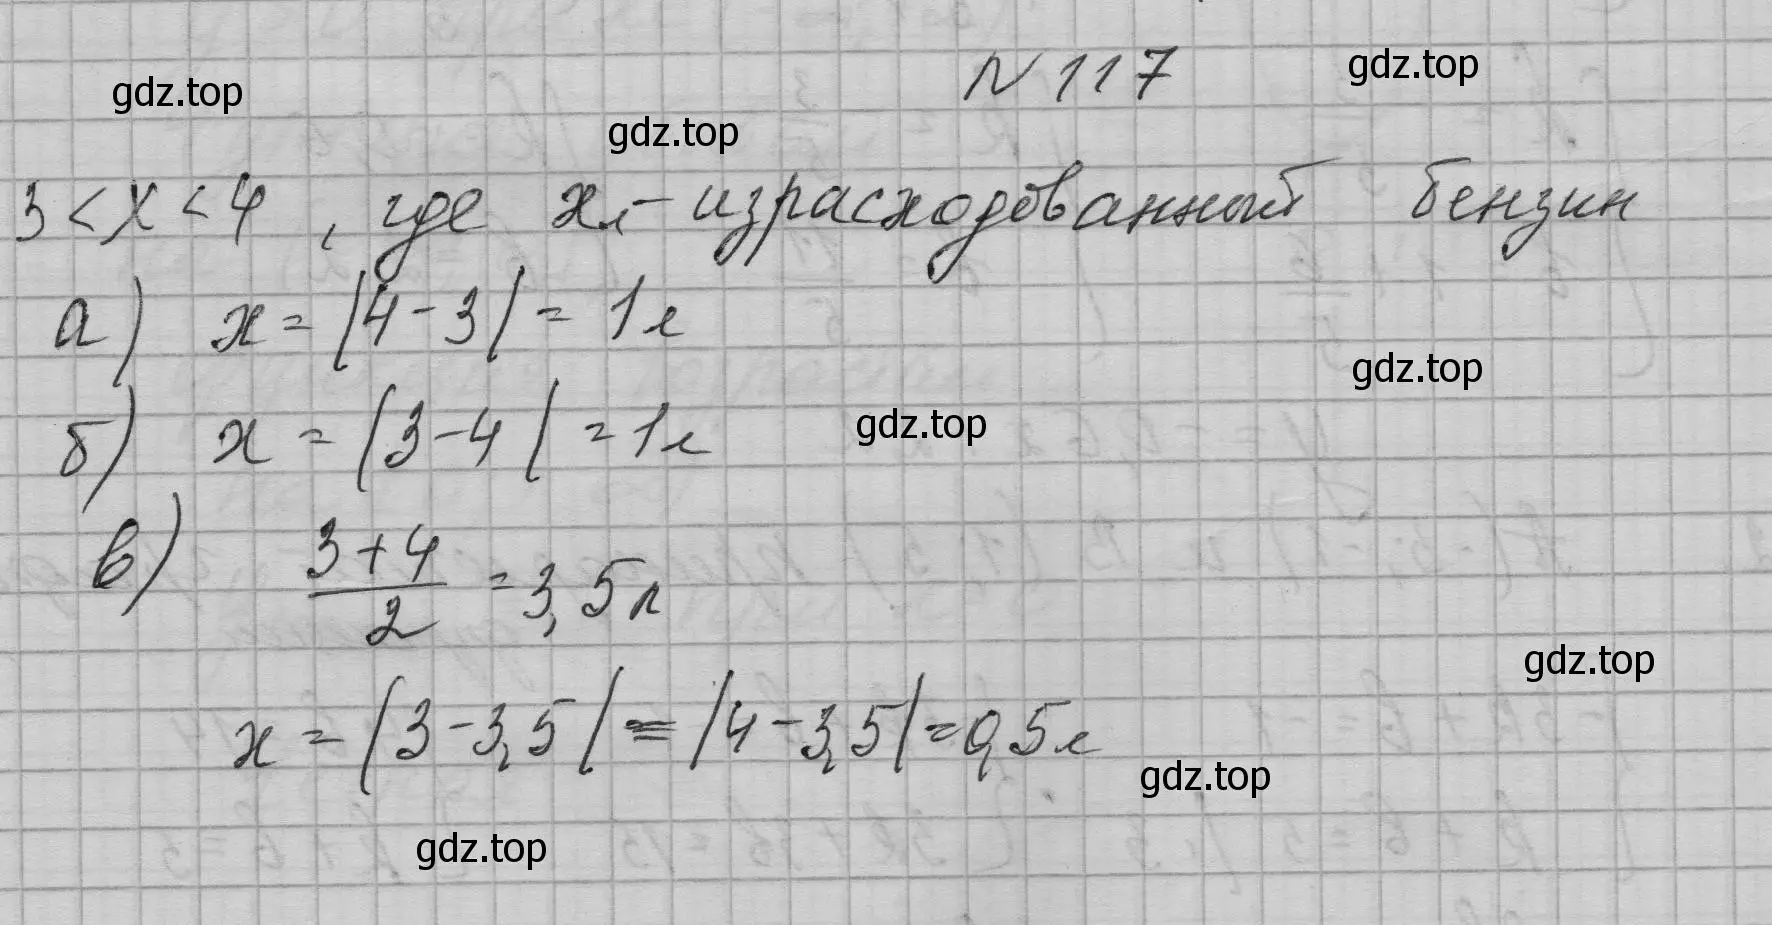 № 117
gdz.top
gdz.top
gdz.top
3 < x < 4, где x л - израсходованный бензин
а) x = |4 - 3| = 1л
gdz.top
б) x = |3 - 4| = 1л
gdz.top
в) (3 + 4)/2 = 3,5л
gdz.top
x = |3 - 3,5| = |4 - 3,5| = 0,5л
gdz.top
gdz.top